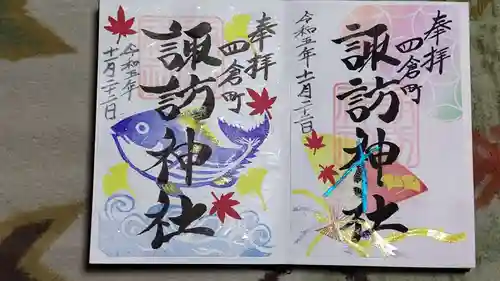 奉拝
四倉町
諏訪神社
令和五年
十一月二十二日
奉拝
四倉町
諏訪神社
令和五年
十一月二十二日